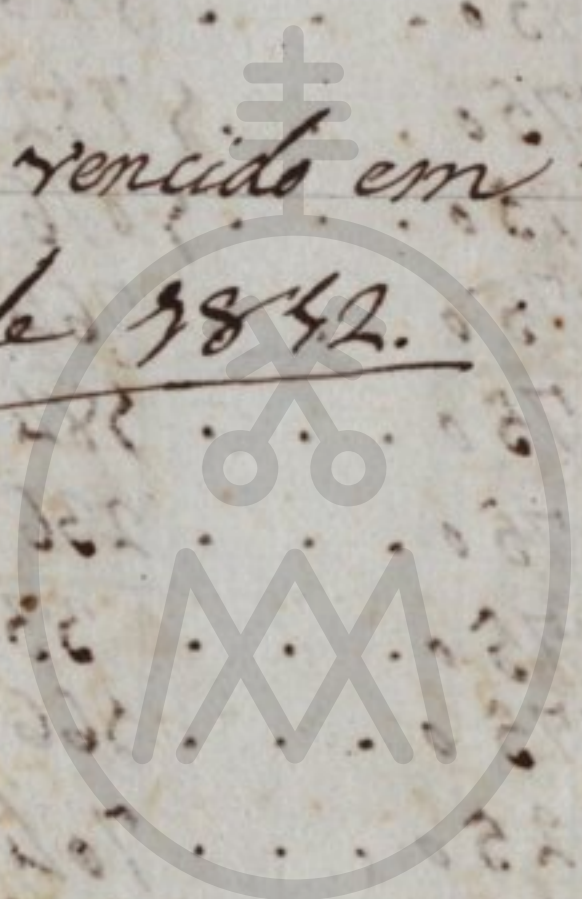 vencido em
de 1842.